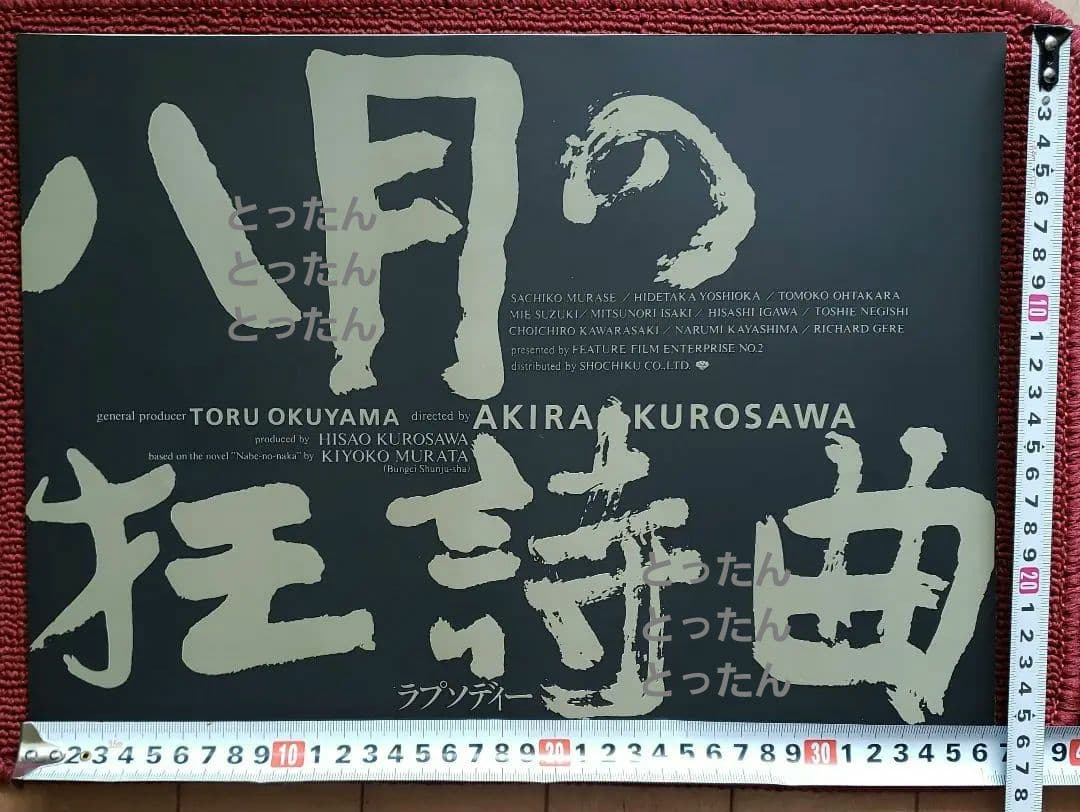 八月の
とったん
とったん
とったん
SACHIKO MURASE / HIDETAKA YOSHIOKA / TOMOKO OHTAKARA
MIE SUZUKI / MITSUNORI ISAKI / HISASHI IGAWA / TOSHIE NEGISHI
CHOICHIRO KAWARASAKI / NARUMI KAYASHIMA / RICHARD GERE
presented by FEATURE FILM ENTERPRISE NO.2
distributed by SHOCHIKU CO.,LTD.
general producer TORU OKUYAMA directed by AKIRA KUROSAWA
produced by HISAO KUROSAWA
based on the novel "Nabe-no-naka" by KIYOKO MURATA
(Bungei Shunju-sha)
狂詩曲
とったん
とったん
とったん
ラプソディー
2 3 4 5 6 7 8 9 10 1 2 3 4 5 6 7 8 9 20 1 2 3 4 5 6 7 8 9 30 1 2 3 4 5 6 7 9
3 4 5 6 7 8 9 10 1 2 3 4 5 6 7 8 9 20 1 2 3 4 5 6 7 8